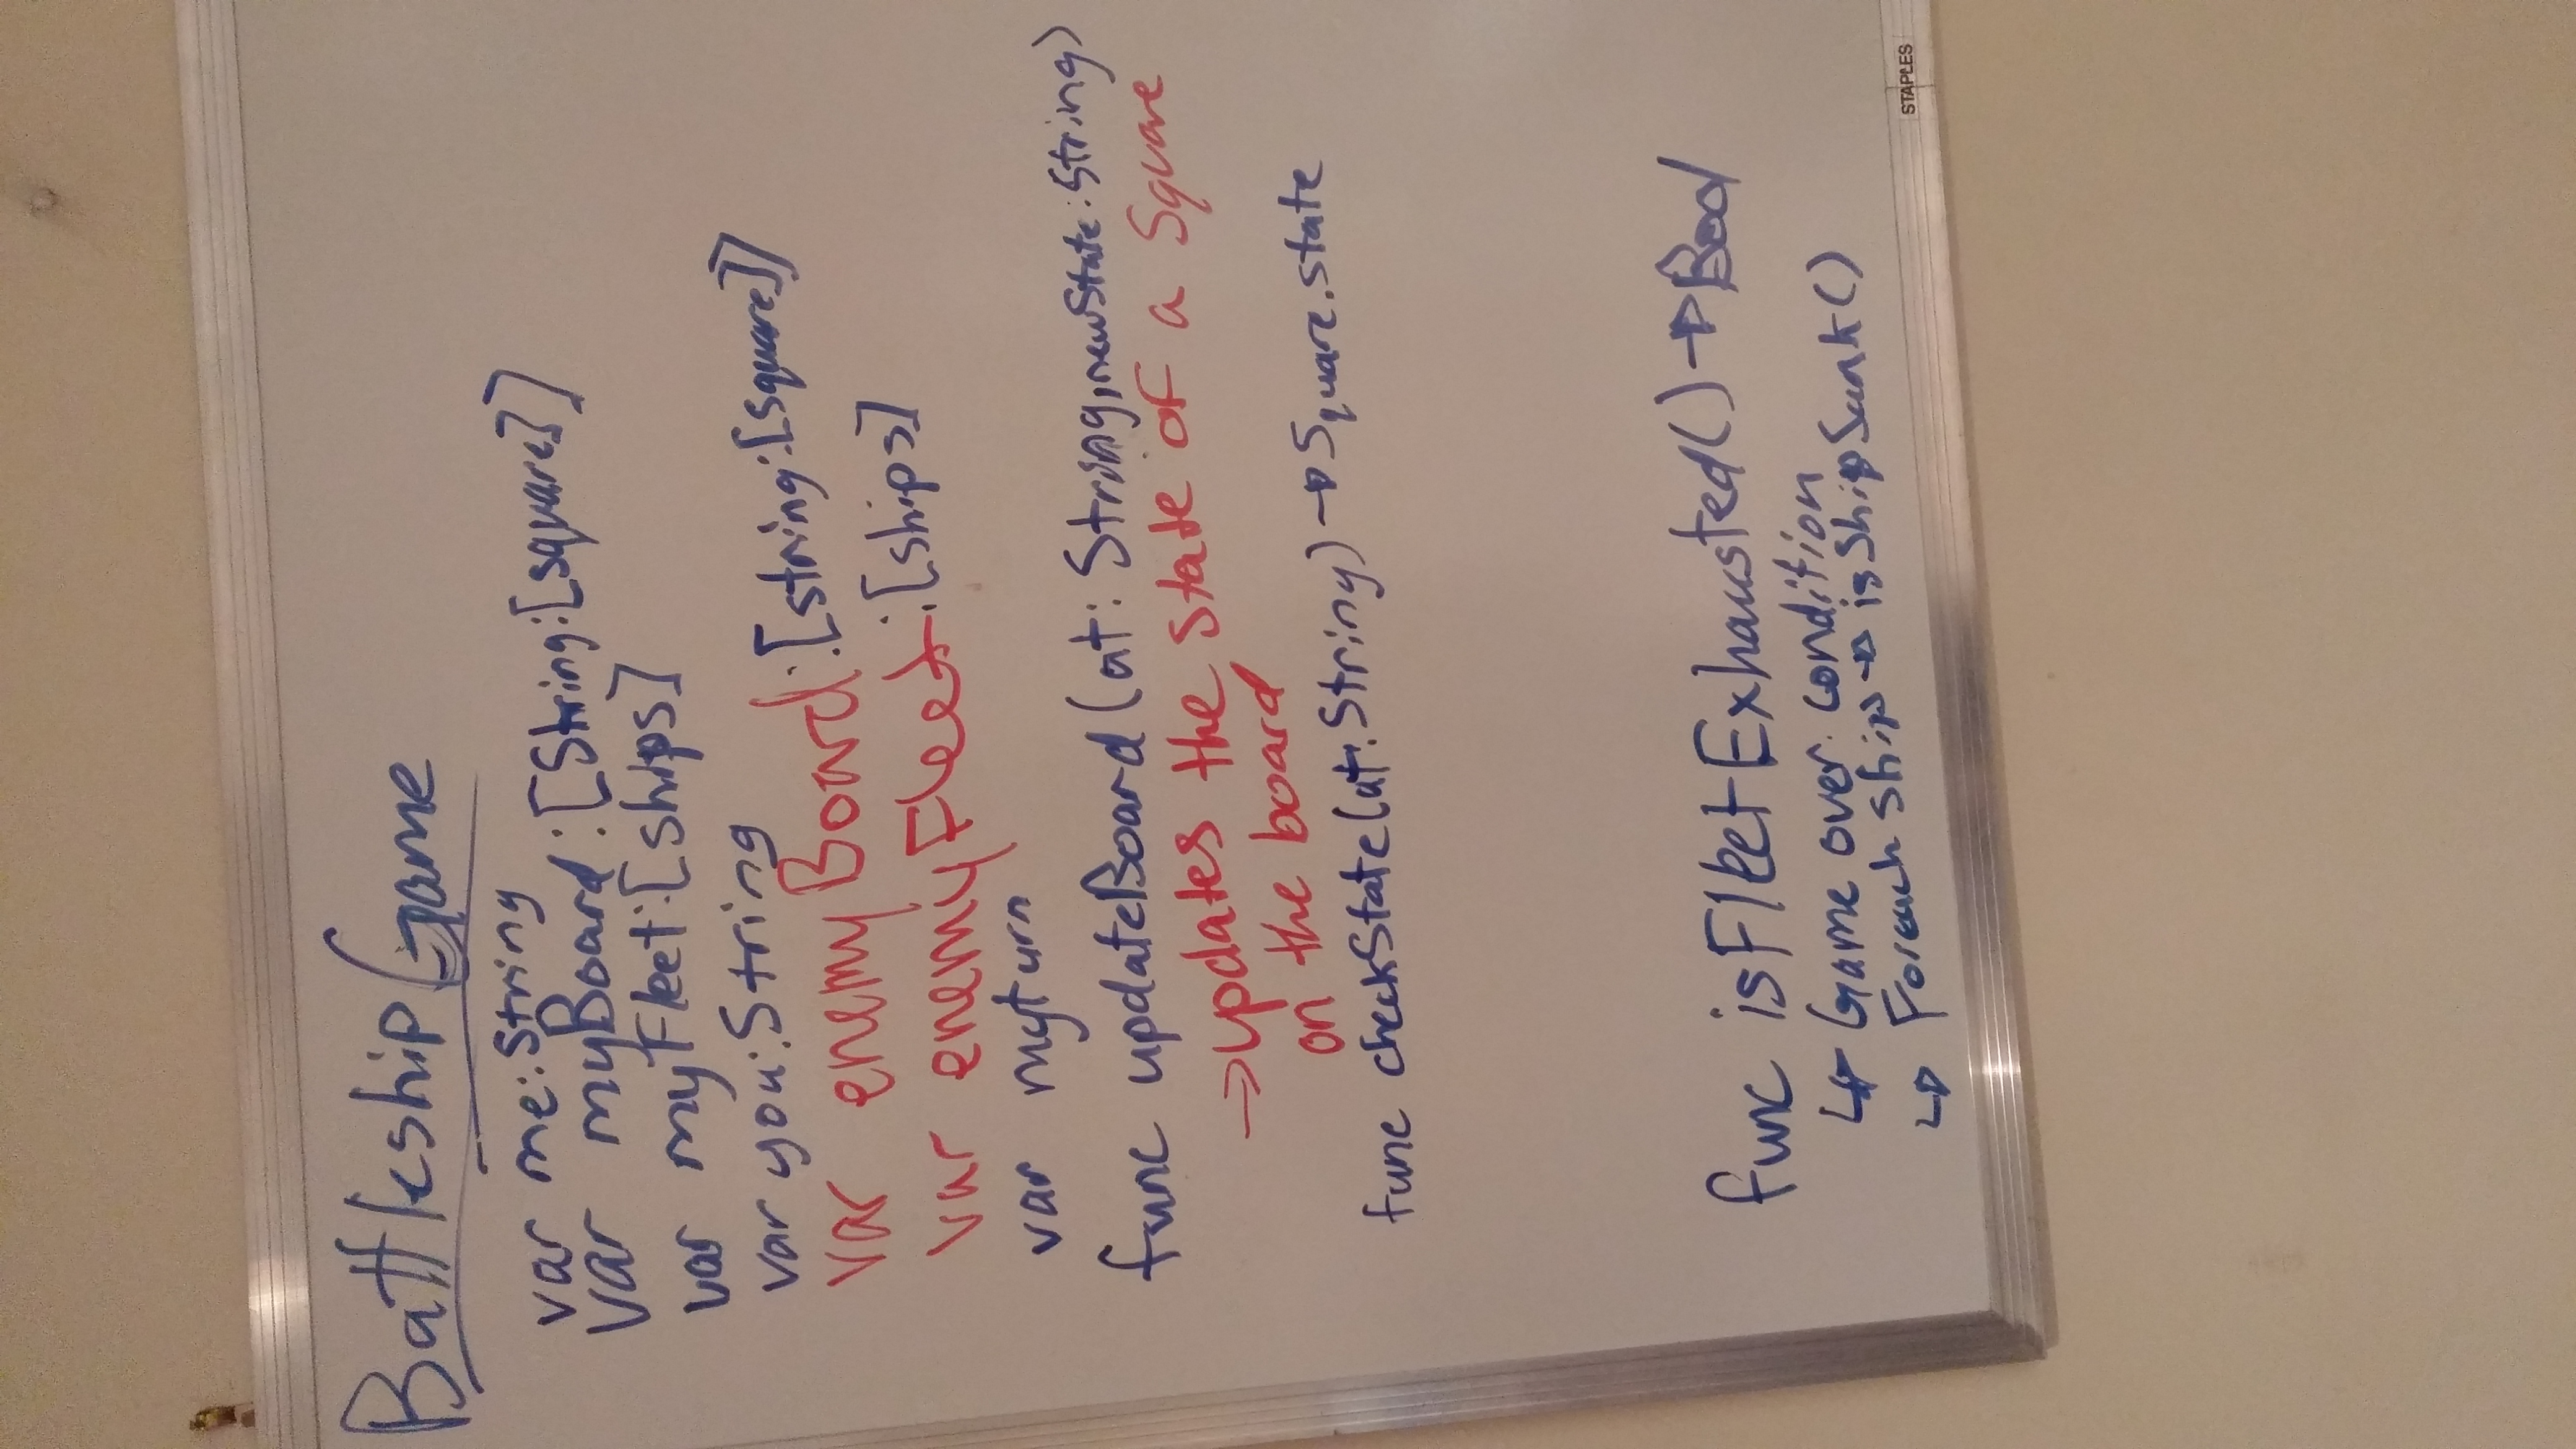 BattleshipGame
var me:String
var myBoard:[String:[square]]
var myFleet:[ships]
var you:String
var enemyBoard:[string:[square]]
var enemyFleet:[ships]
var myturn
func updateBoard(at: String,newState:String)
→updates the state of a Square
on the board
func checkState(at:String)→Square.state
func isFleetExhausted()→Bool
↳ Game over condition
↳ Foreach ship→isShipSunk()
STAPLES